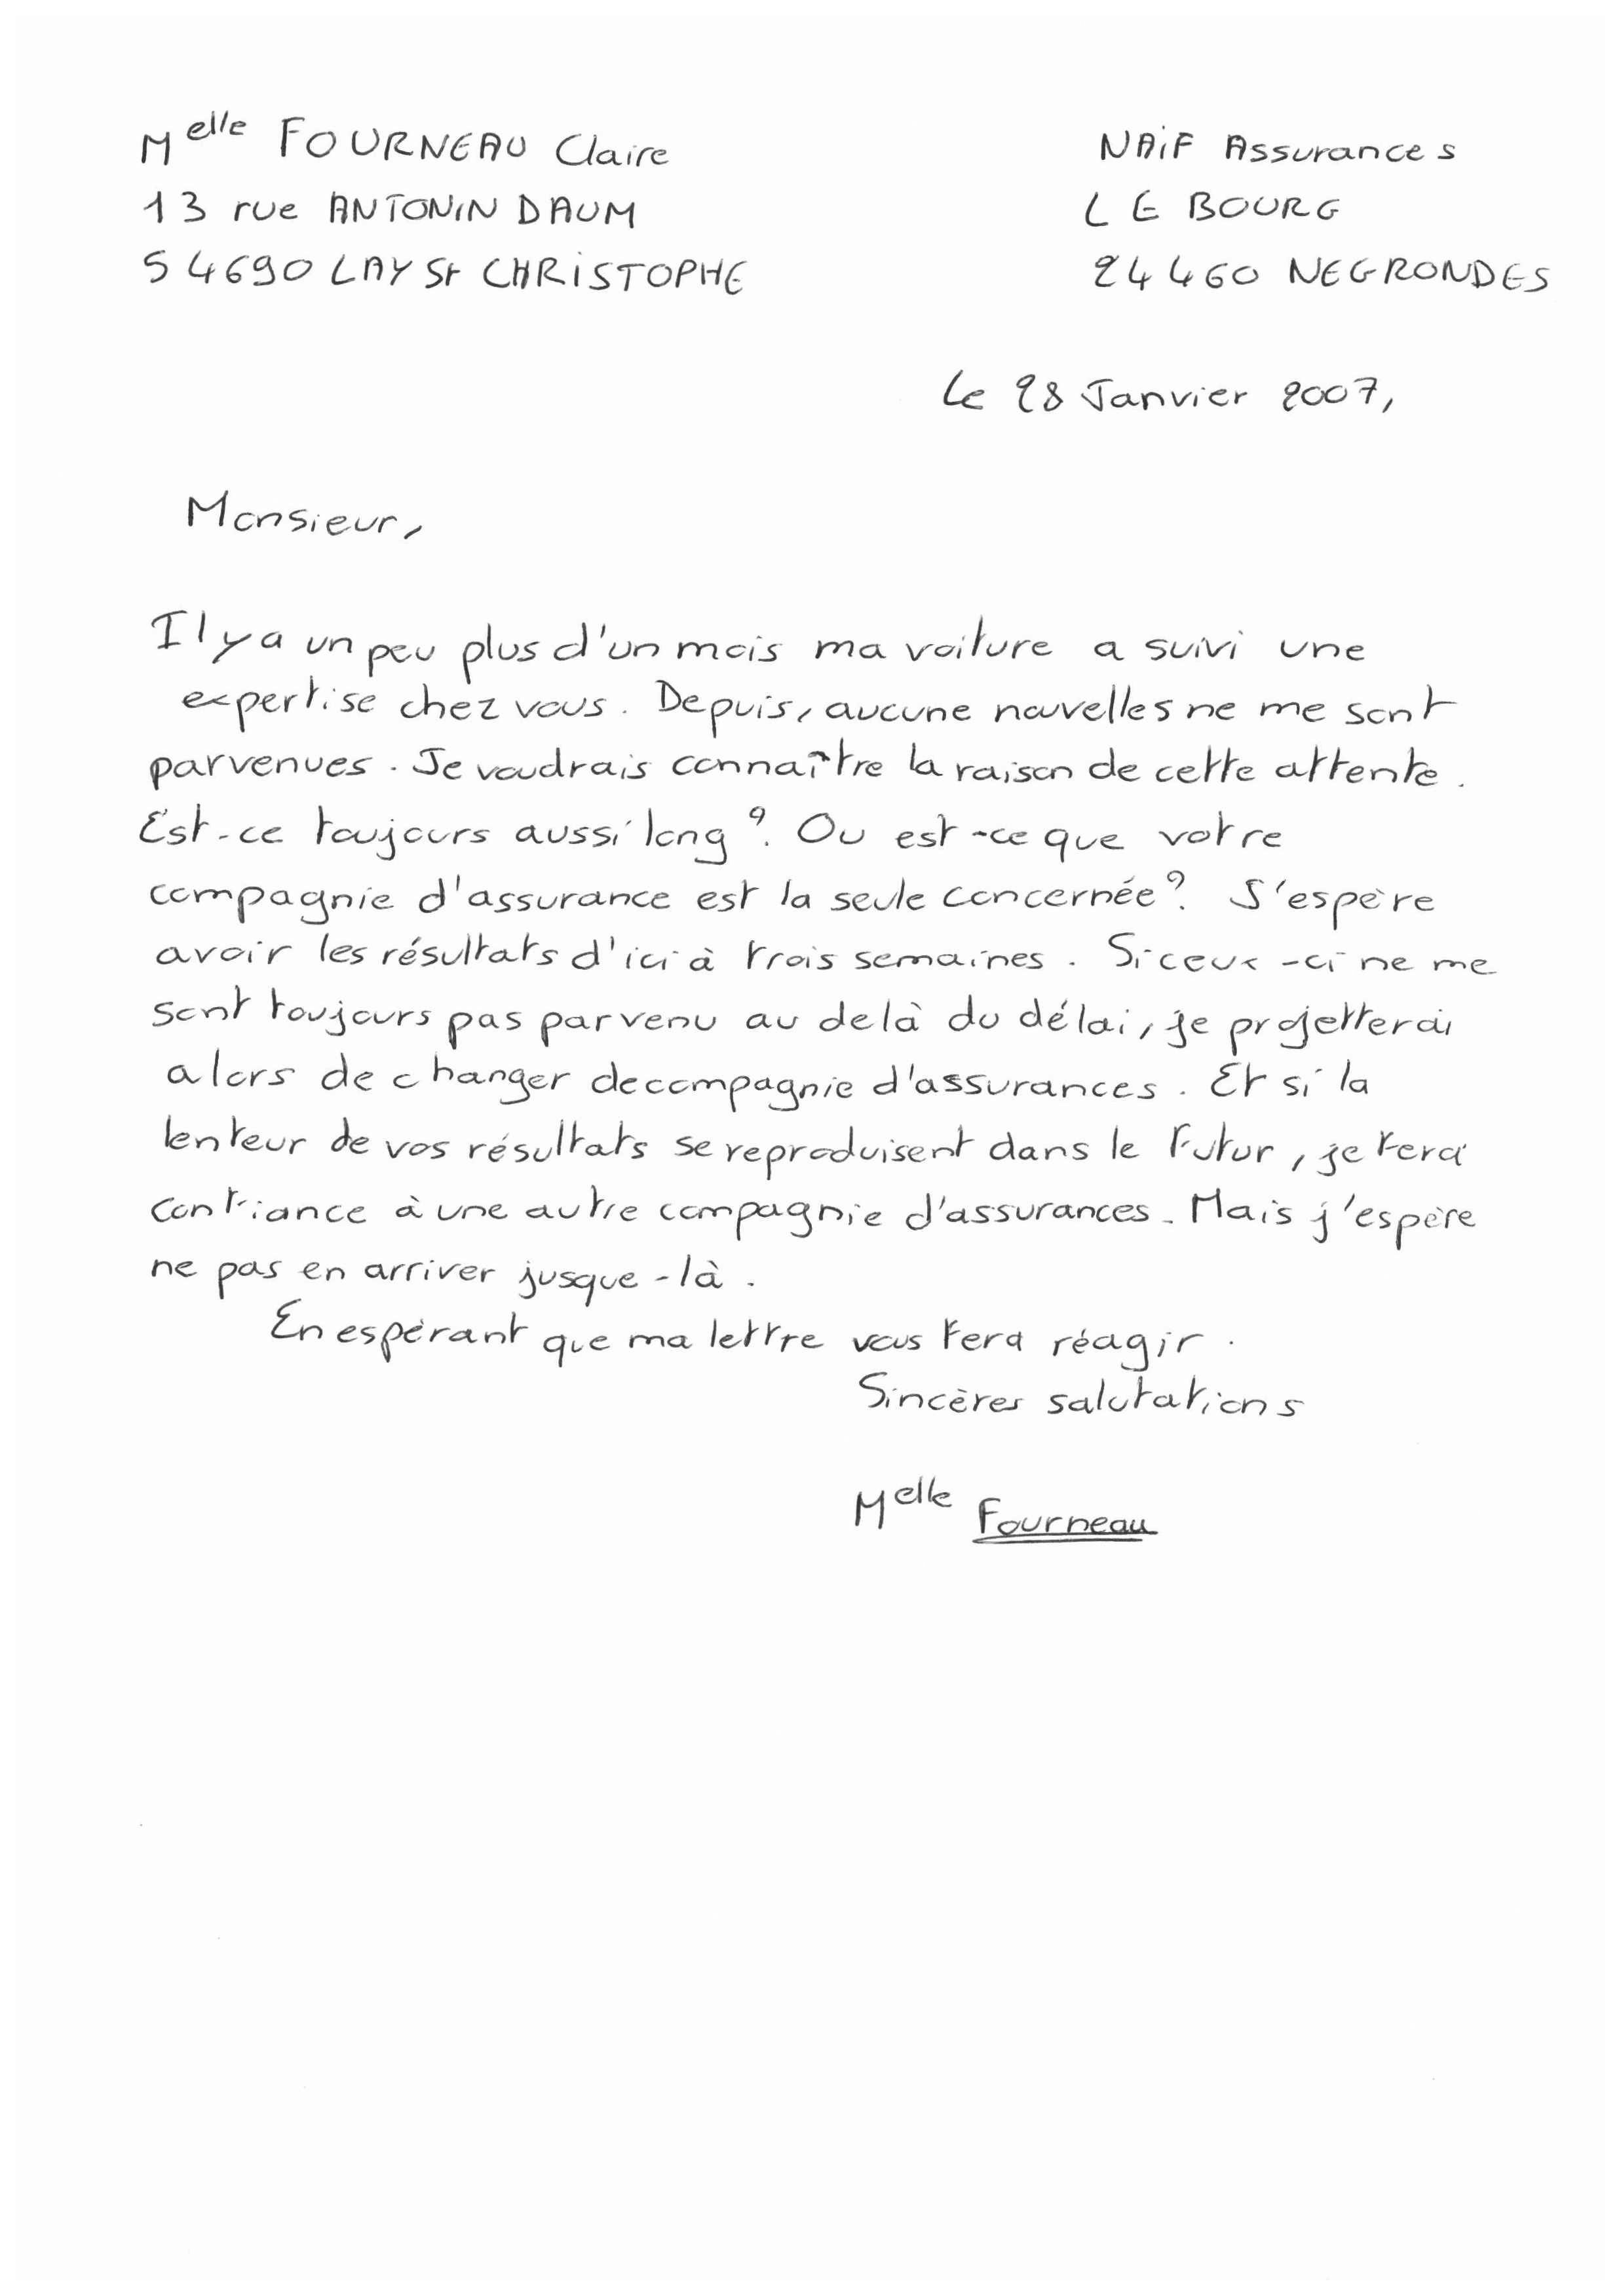 Melle FOURNEAU Claire
13 rue ANTONIN DAUM
54690 LAY St CHRISTOPHE
NAIF Assurances
LE BOURG
24460 NEGRONDES
Le 28 Janvier 2007,
Monsieur,
Il y a un peu plus d'un mois ma voiture a suivi une
expertise chez vous. Depuis, aucune nouvelles ne me sont
parvenues. Je voudrais connaître la raison de cette attente.
Est-ce toujours aussi long ? Ou est-ce que votre
compagnie d'assurance est la seule concernée ? J'espère
avoir les résultats d'ici à trois semaines. Si ceux-ci ne me
sont toujours pas parvenu au delà du délai, je projetterai
alors de changer de compagnie d'assurances. Et si la
lenteur de vos résultats se reproduisent dans le futur, je ferai
confiance à une autre compagnie d'assurances. Mais j'espère
ne pas en arriver jusque-là.
En espérant que ma lettre vous fera réagir.
Sincères salutations
Melle Fourneau